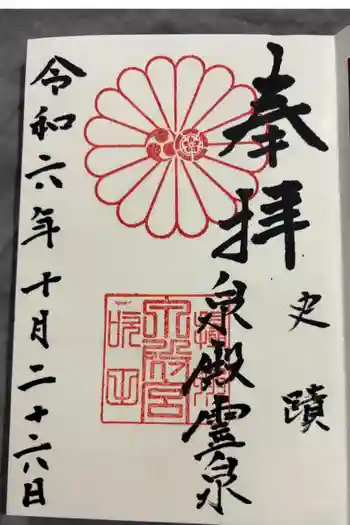 奉拝
史蹟
泉殿霊泉
令和六年十月二十六日